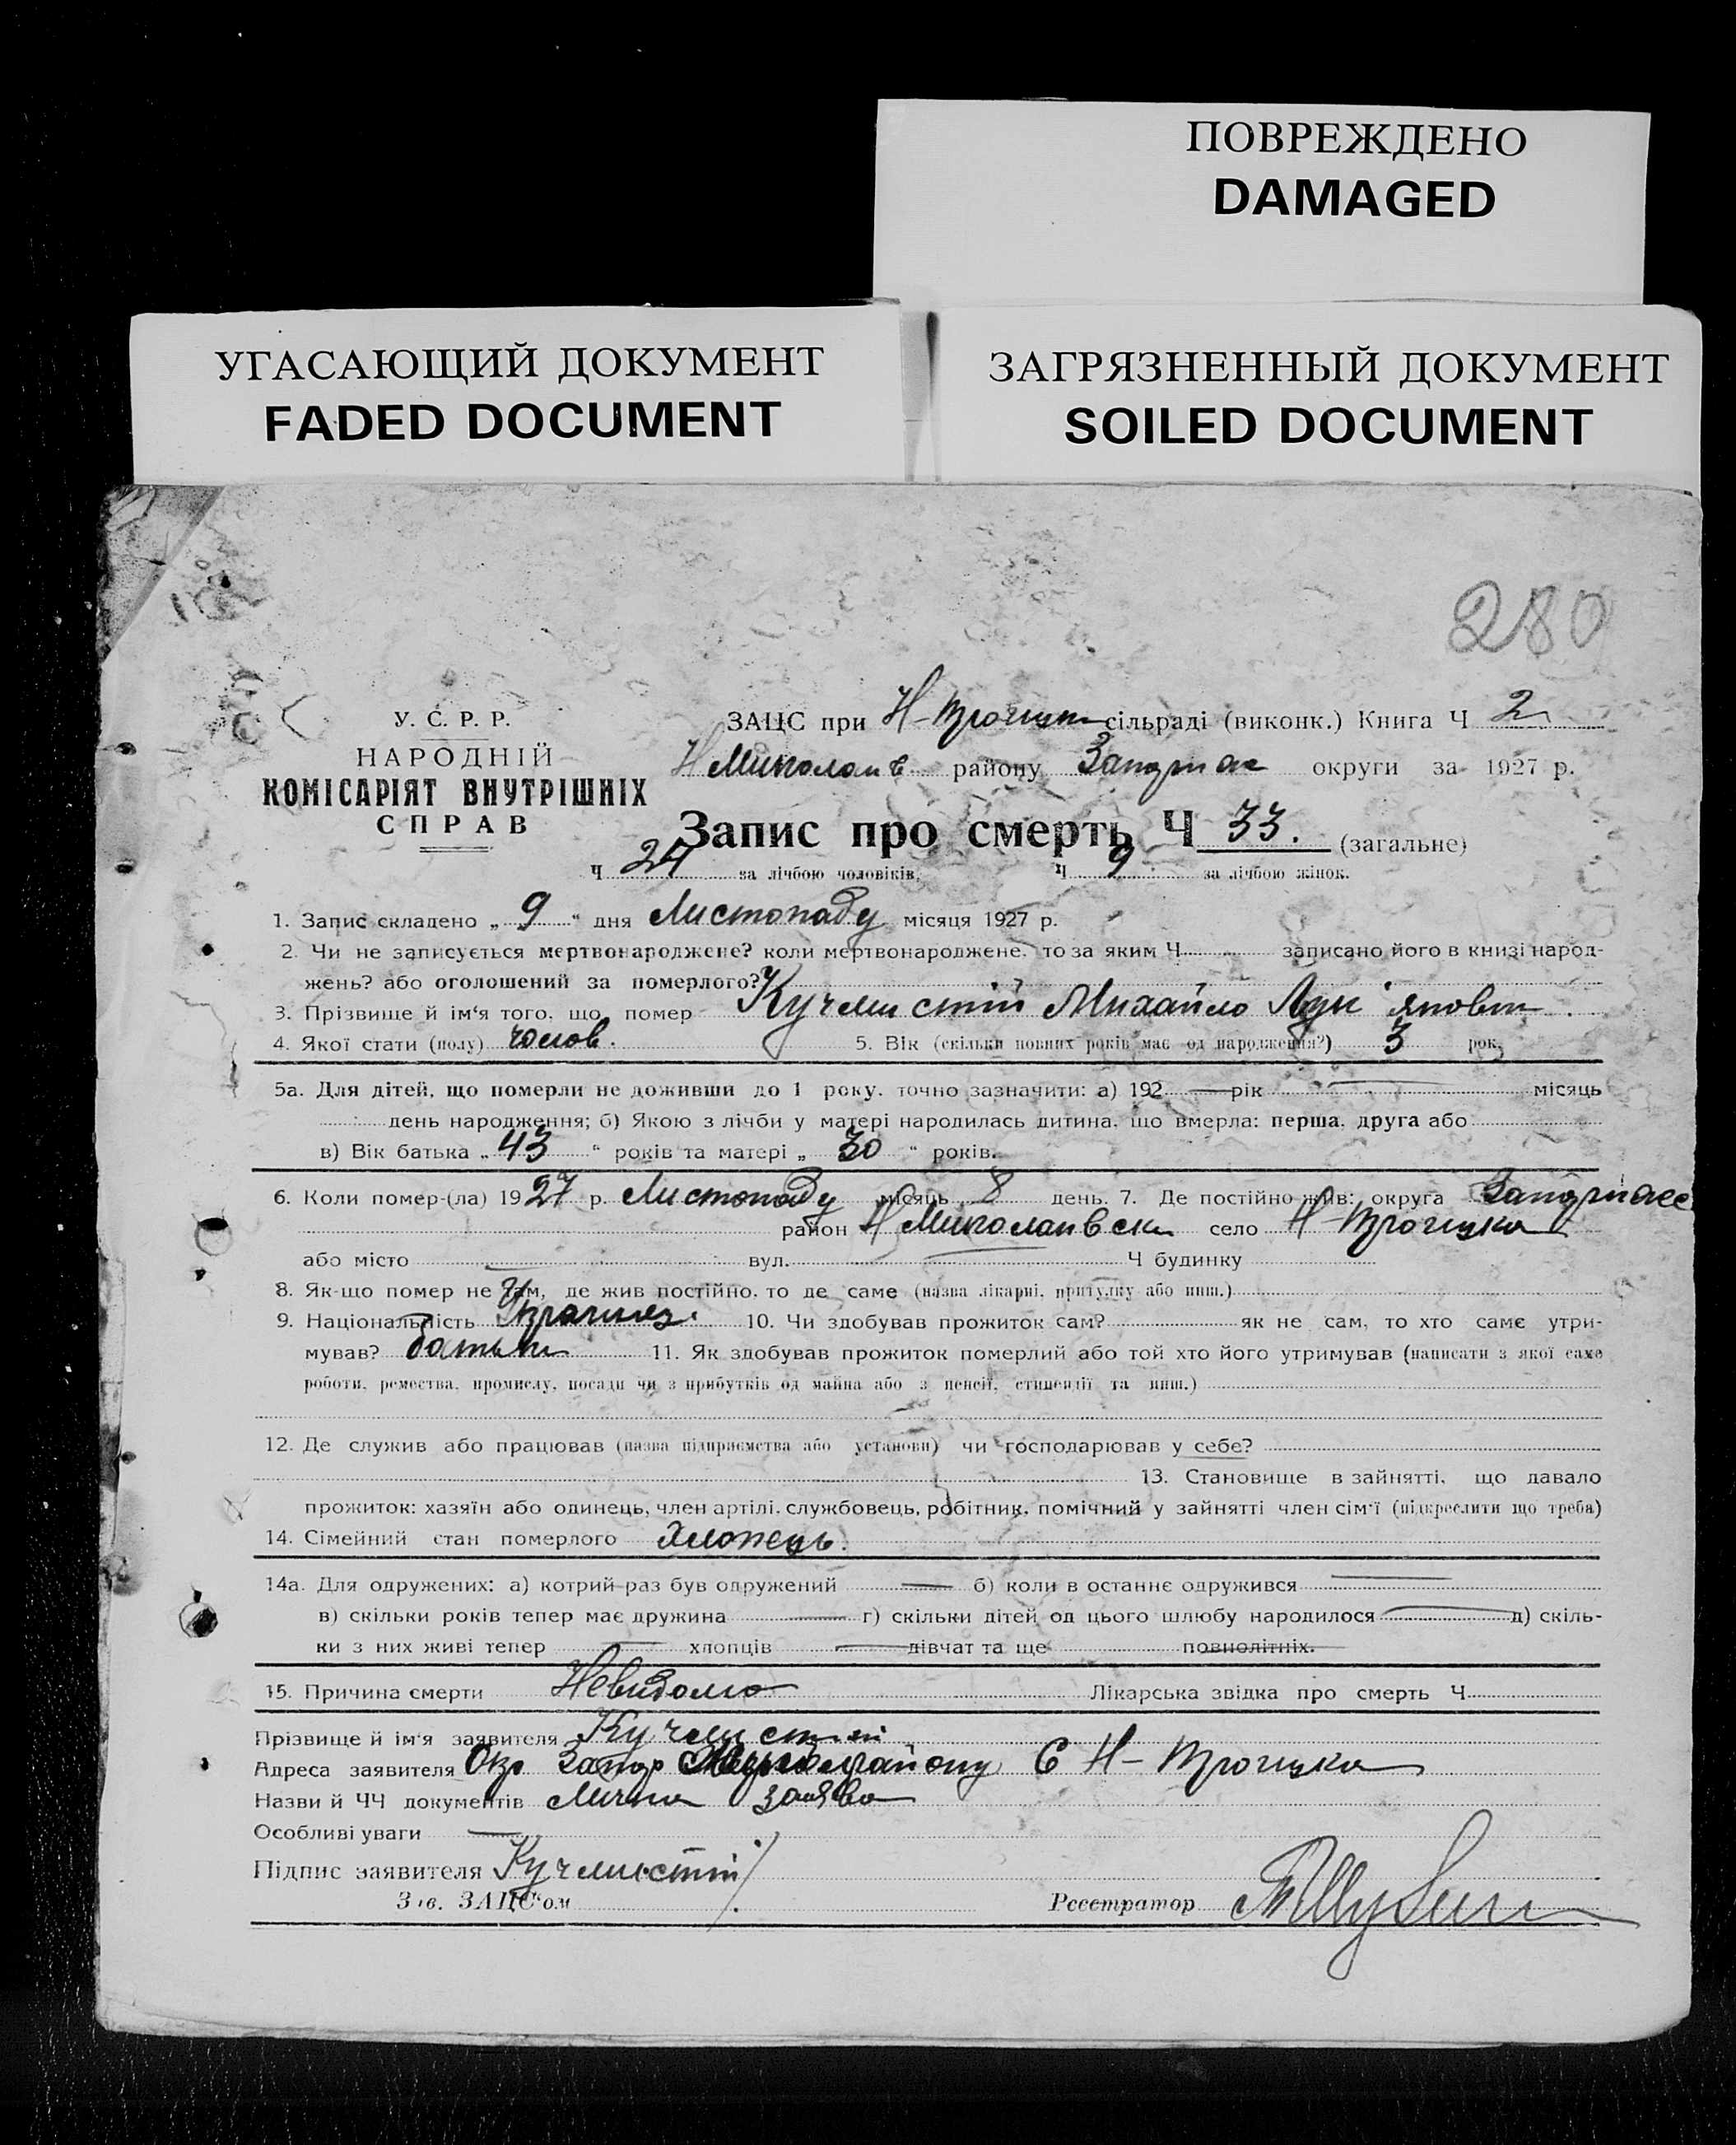 ПОВРЕЖДЕНО
DAMAGED
УГАСАЮЩИЙ ДОКУМЕНТ
FADED DOCUMENT
ЗАГРЯЗНЕННЫЙ ДОКУМЕНТ
SOILED DOCUMENT
280
У. С. Р. Р.
НАРОДНІЙ
КОМІСАРІЯТ ВНУТРІШНІХ
СПРАВ
ЗАЦС при Н-Троицьк сільраді (виконк.) Книга Ч 2
Н Миколаив району Запоріж округи за 1927 р.
Запис про смерть Ч 33. (загальне)
Ч 24 за лічбою чоловіків, Ч 9 за лічбою жінок.
1. Запис складено „ 9 “ дня Листопаду місяця 1927 р.
2. Чи не записується мертвонароджене? коли мертвонароджене, то за яким Ч записано його в книзі народ-
жень? або оголошений за померлого?
3. Прізвище й ім‘я того, що помер Кучмистій Михайло Лук‘янович
4. Якої стати (полу) чолов. 5. Вік (скільки повних років має од народження?) 3 рок.
5а. Для дітей, що померли не доживши до 1 року, точно зазначити: а) 192 — рік — місяць
день народження; б) Якою з лічби у матері народилась дитина, що вмерла: перша, друга або
в) Вік батька „ 43 “ років та матері „ 30 “ років.
6. Коли помер-(ла) 1927 р. Листопаду місяць 8 день. 7. Де постійно жив: округа
район Н Миколаивськ село Н-Троицька
або місто — вул. — Ч будинку
8. Як-що помер не там, де жив постійно, то де саме (назва лікарні, притулку або инш.)
9. Національність Украинец. 10. Чи здобував прожиток сам? як не сам, то хто саме утри-
мував? батьки 11. Як здобував прожиток померлий або той хто його утримував (написати з якої саме
роботи, ремества, промислу, посади чи з прибутків од майна або з пенсії, стипендії та инш.)
12. Де служив або працював (назва підприємства або установи) чи господарював у себе?
13. Становище в зайнятті, що давало
прожиток: хазяїн або одинець, член артілі, службовець, робітник, помічний у зайнятті член сім‘ї (підкреслити що треба)
14. Сімейний стан померлого Хлопець.
14а. Для одружених: а) котрий раз був одружений — б) коли в останнє одружився —
в) скільки років тепер має дружина — г) скільки дітей од цього шлюбу народилося — д) скіль-
ки з них живі тепер — хлопців — дівчат та ще повнолітніх.
15. Причина смерти Невидомо Лікарська звідка про смерть Ч
Прізвище й ім‘я заявителя Кучмистий
Адреса заявителя Окр Запор району С Н-Троицька
Назви й ЧЧ документів Лична заява
Особливі уваги —
Підпис заявителя Кучмистий
Зав. ЗАЦС‘ом Реєстратор